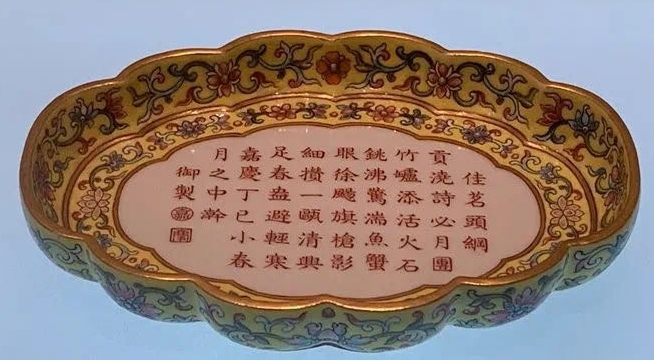 佳茗頭綱
貢澆詩必月團
竹爐添活火石
銚沸驚濤魚蟹
眼徐颼旗槍影
細攢一甌清興
足春盎避輕寒
嘉慶丁巳小春
月之中澣
御製
嘉